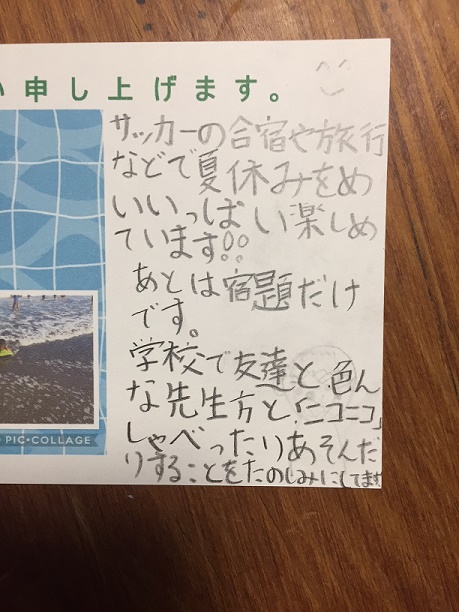 い申し上げます。
サッカーの合宿や旅行
などで夏休みをめ
いいっぱい楽しめ
ています!!
あとは宿題だけ
です。
学校で友達と色ん
な先生方と「ニコニコ」
しゃべったりあそんだ
りすることをたのしみにしてます
PIC•COLLAGE